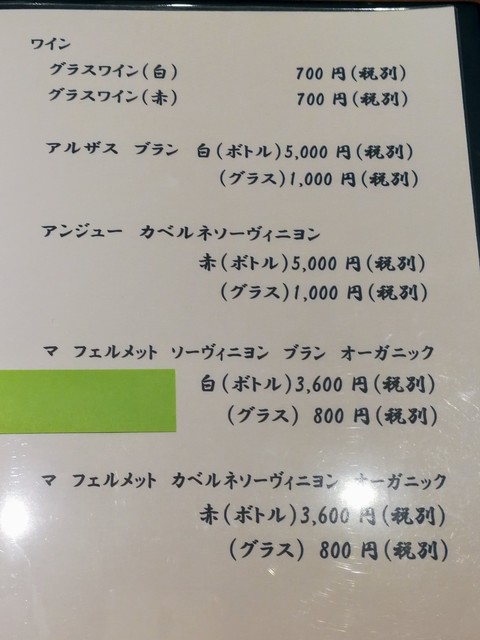 ワイン
グラスワイン(白) 700円(税別)
グラスワイン(赤) 700円(税別)
アルザス ブラン 白(ボトル)5,000円(税別)
(グラス)1,000円(税別)
アンジュー カベルネソーヴィニヨン
赤(ボトル)5,000円(税別)
(グラス)1,000円(税別)
マ フェルメット ソーヴィニヨン ブラン オーガニック
白(ボトル)3,600円(税別)
(グラス) 800円(税別)
マ フェルメット カベルネソーヴィニヨン オーガニック
赤(ボトル)3,600円(税別)
(グラス) 800円(税別)